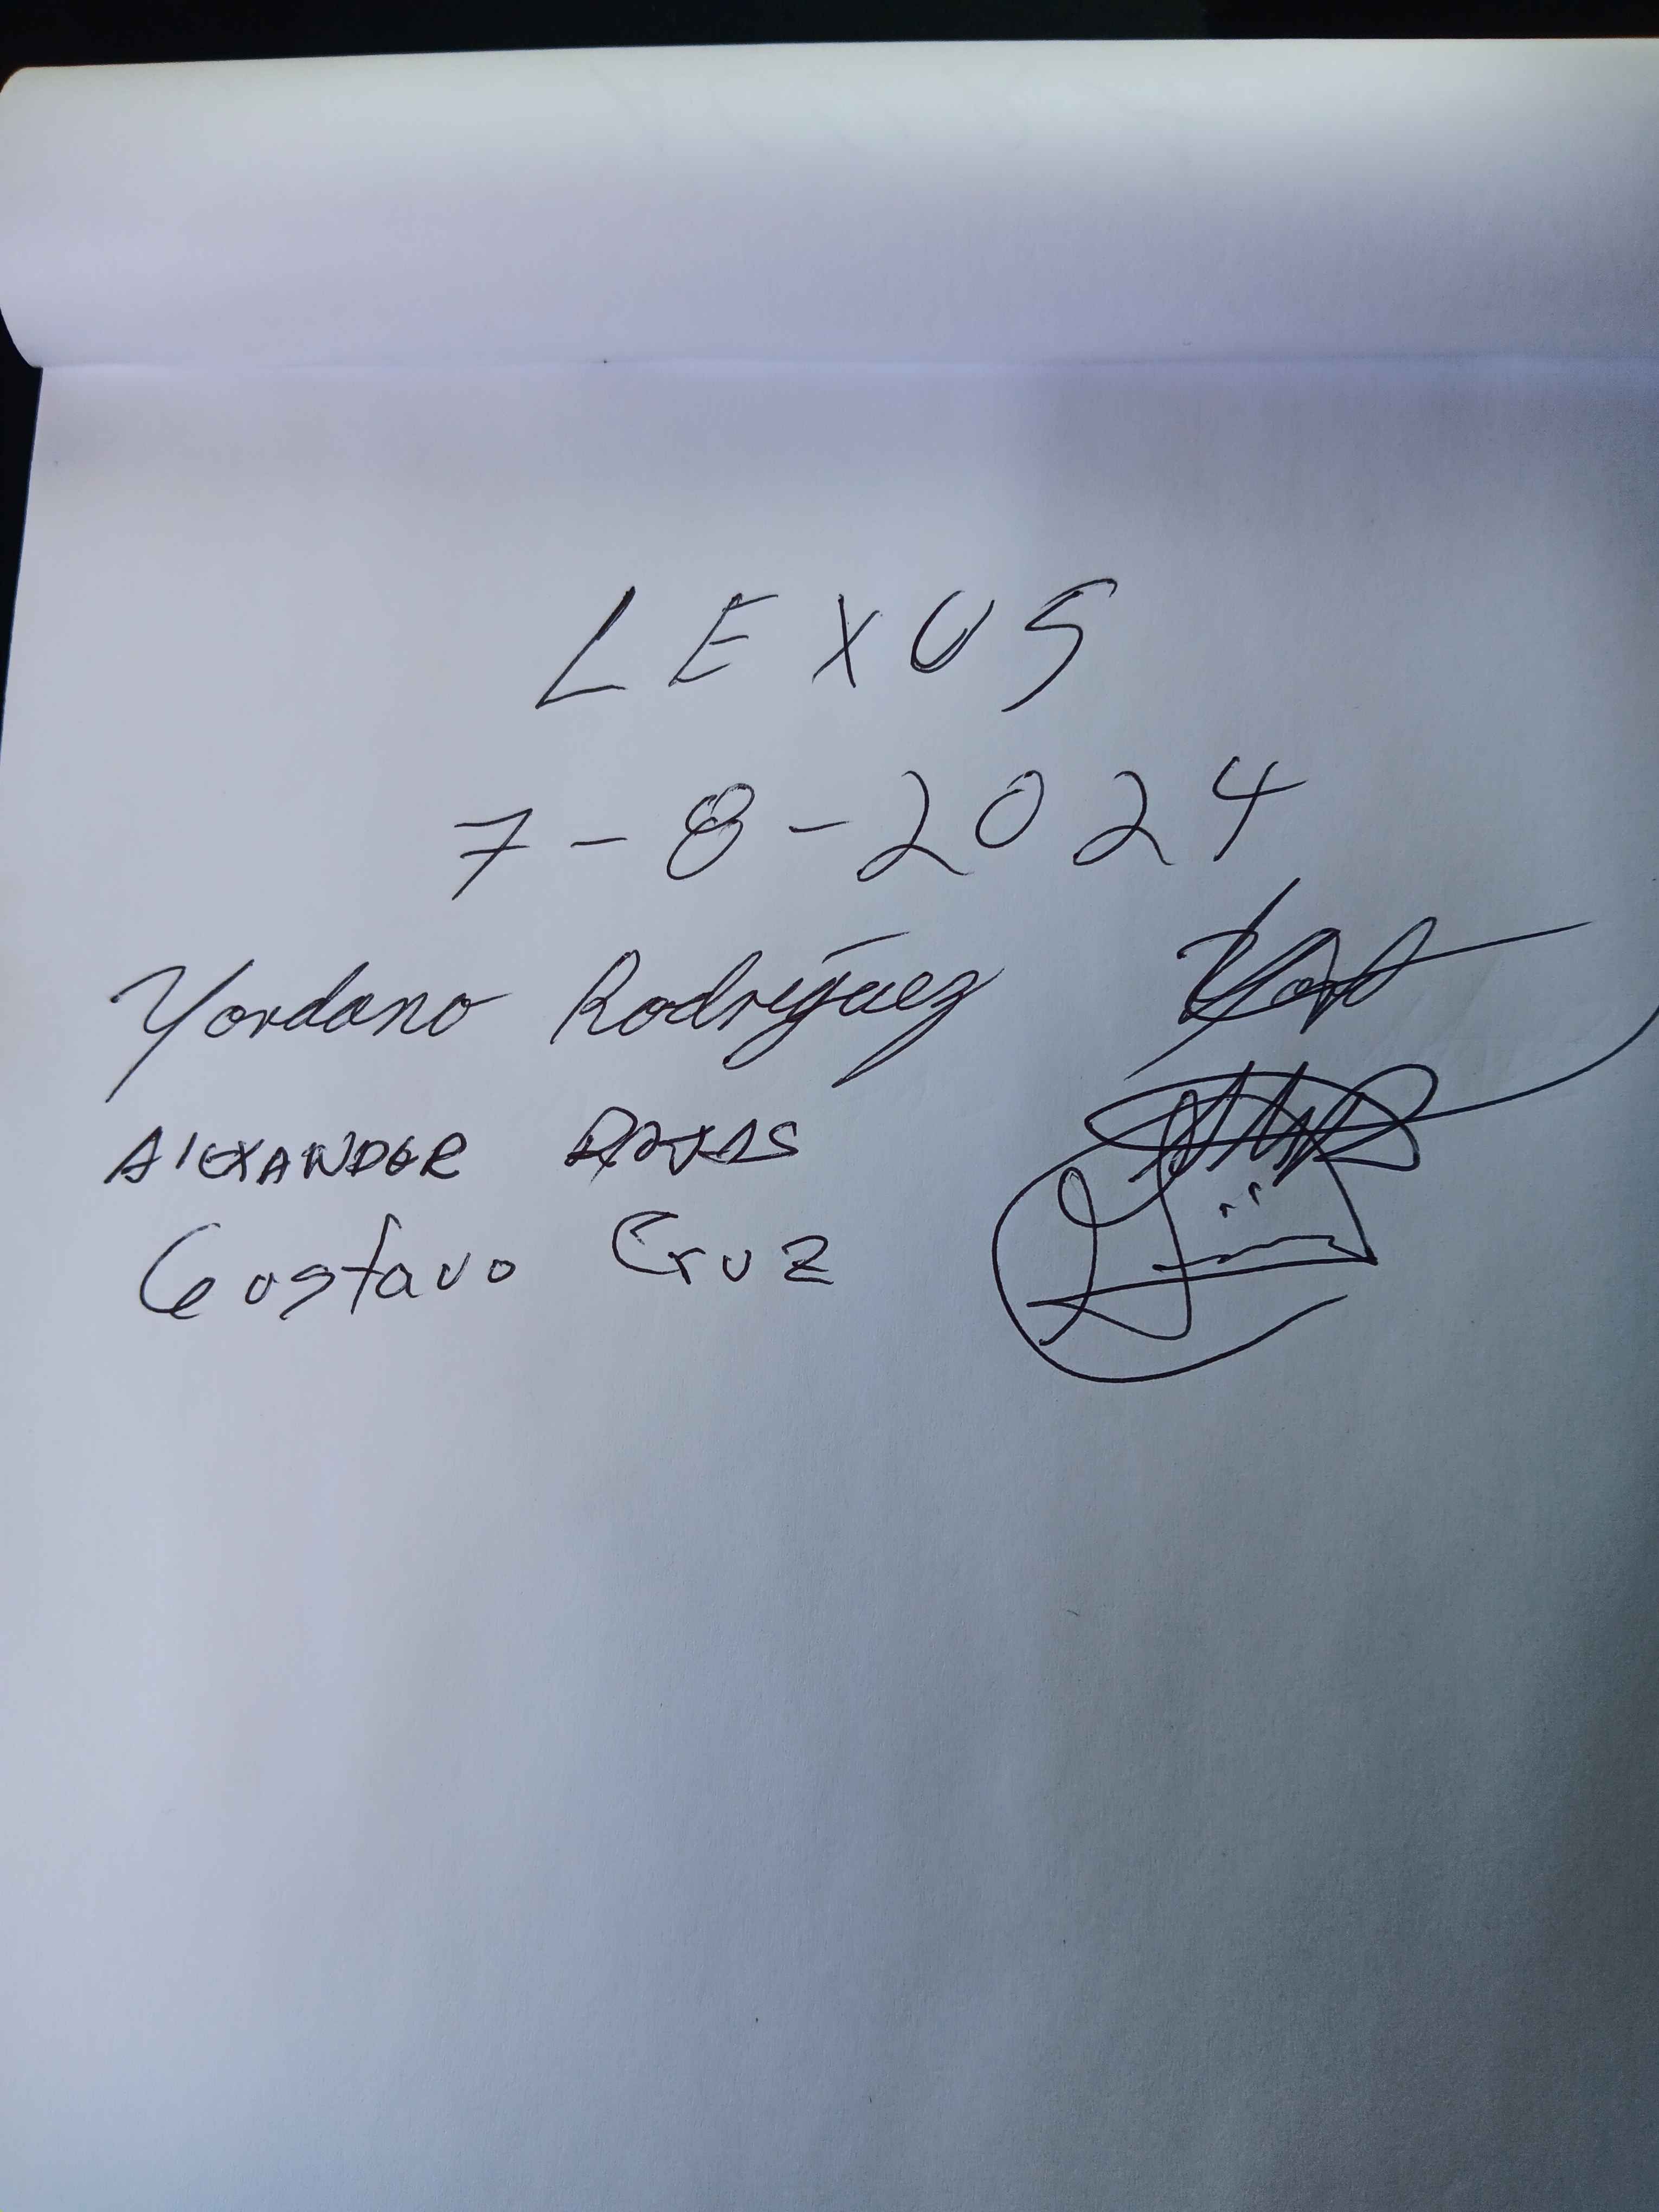 LEXUS
7-8-2024
Yordano Rodríguez
AlEXANDER ROJAS
Gustavo Cruz